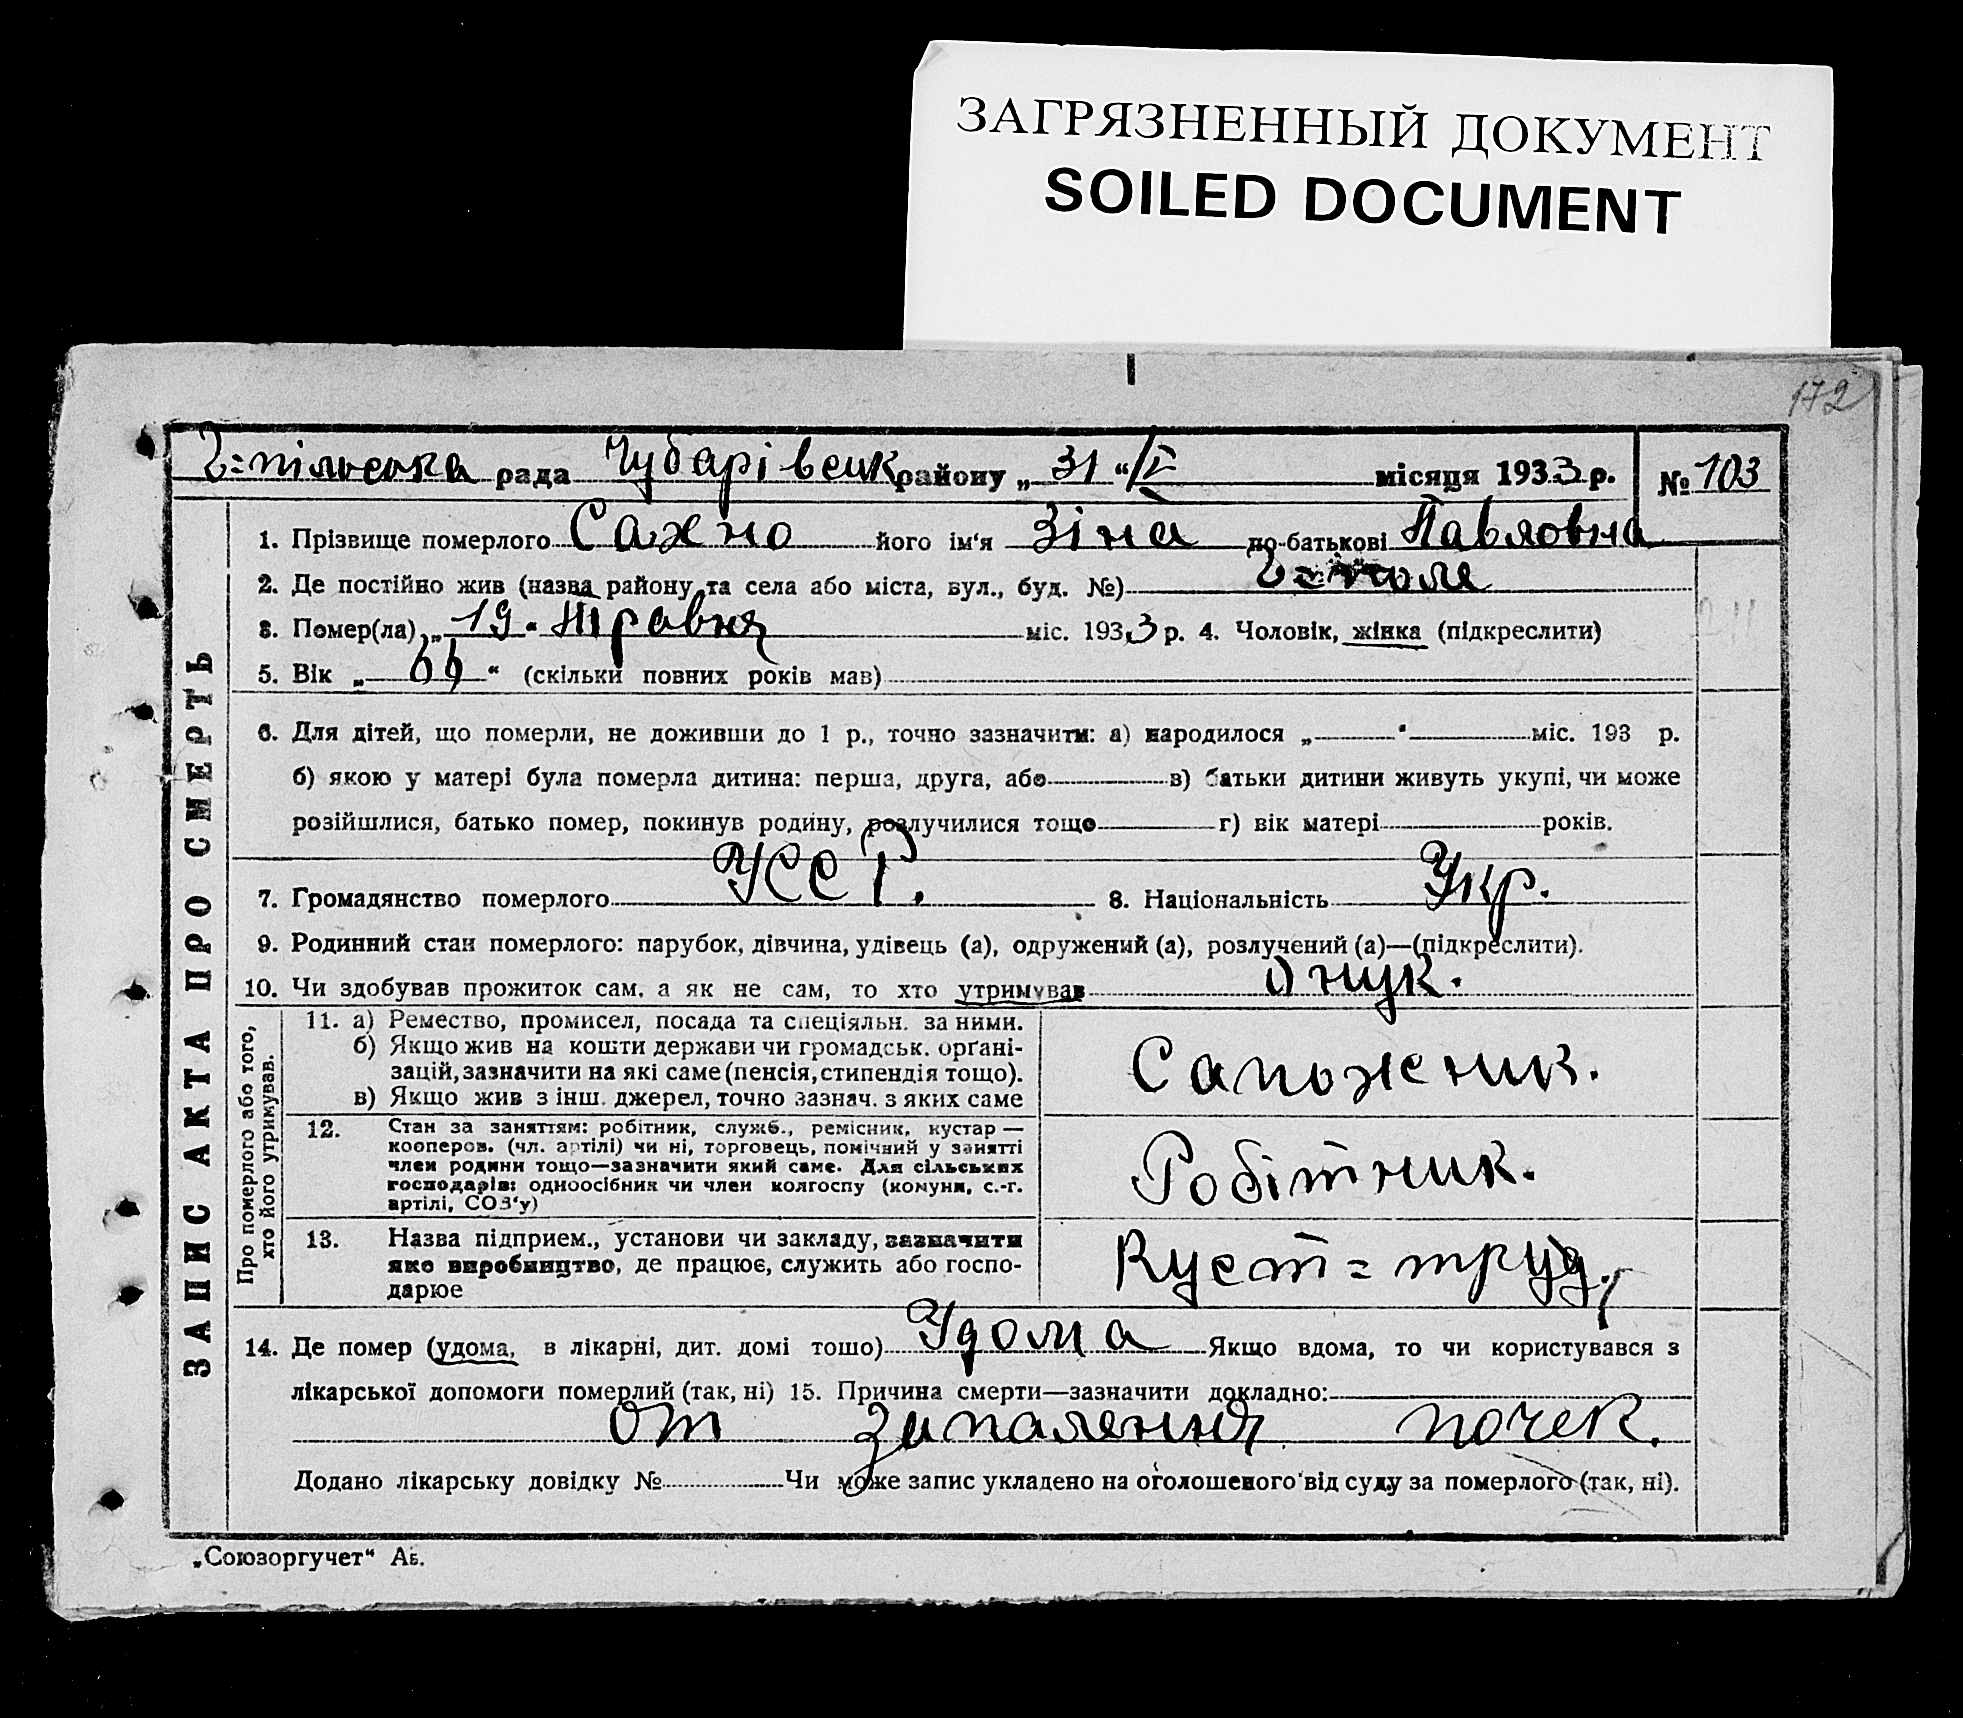 ЗАГРЯЗНЕННЫЙ ДОКУМЕНТ
SOILED DOCUMENT
172
Г=пільська рада Чубарівськ району „31“/V місяця 1933 р. № 103
ЗАПИС АКТА ПРО СМЕРТЬ
1. Прізвище померлого Сахно його ім‘я Зіна по-батькові Павловна
2. Де постійно жив (назва району та села або міста, вул., буд. №) Г=поле
3. Помер(ла) „19“ травня міс. 1933 р. 4. Чоловік, жінка (підкреслити)
5. Вік „66“ (скільки повних років мав)
6. Для дітей, що померли, не доживши до 1 р., точно зазначити: а) народилося „ “ міс. 193 р.
б) якою у матері була померла дитина: перша, друга, або в) батьки дитини живуть укупі, чи може
розійшлися, батько помер, покинув родину, розлучилися тощо г) вік матері років.
7. Громадянство померлого УССР. 8. Національність Укр.
9. Родинний стан померлого: парубок, дівчина, удівець (а), одружений (а), розлучений (а)—(підкреслити).
10. Чи здобував прожиток сам, а як не сам, то хто утримував Онук.
Про померлого або того,
хто його утримував.
11. а) Ремество, промисел, посада та спеціяльн. за ними.
б) Якщо жив на кошти держави чи громадськ. орґані-
зацій, зазначити на які саме (пенсія, стипендія тощо).
в) Якщо жив з інш. джерел, точно зазнач. з яких саме
Сапожник.
12. Стан за заняттям: робітник, служб., ремісник, кустар —
кооперов. (чл. артілі) чи ні, торговець, помічний у занятті
член родини тощо—зазначити який саме. Для сільських
господарів: одноосібник чи член колгоспу (комуни, с.-г.
артілі, СОЗ‘у)
Робітник.
13. Назва підприєм., установи чи закладу, зазначити
яке виробництво, де працює, служить або госпо-
дарює
Куст=труд.
14. Де помер (удома, в лікарні, дит. домі тощо) Удома Якщо вдома, то чи користувався з
лікарської допомоги померлий (так, ні) 15. Причина смерти—зазначити докладно:
от запалення почек.
Додано лікарську довідку № Чи може запис укладено на оголошеного від суду за померлого (так, ні).
„Союзоргучет“ Аб.